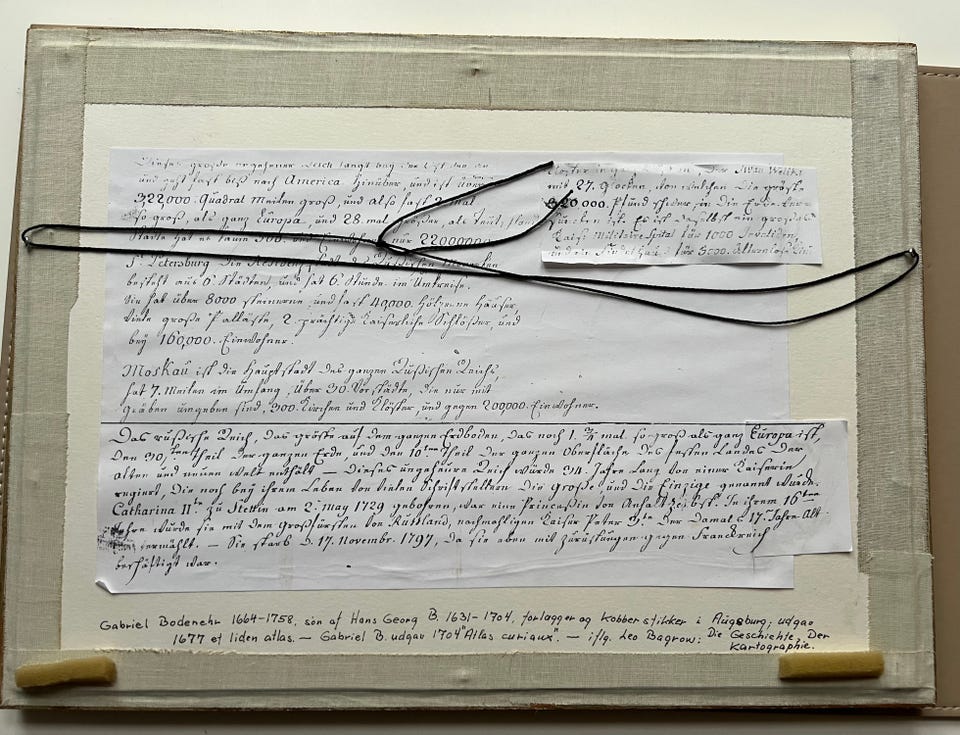 Dieses große ungeheuer Reich langt
und geht fast biß nach America hinüber, und ist über
322,000. Quadrat Meilen groß, und also fast 2 mal
so groß, als ganz Europa, und 28. mal größer, als
Städte hat es kaum Einwohner nur 22000000
St. Petersburg die Residenz,
besteht aus 6 Städten, und hat 6. Stunde im Umkreise.
Sie hat über 8000 steinerne, und fast 40,000. hölzerne Häuser,
viele große Palläste, 2. prächtige Kaiserliche Schlößer, und
bey 160,000. Einwohner.
Moskau ist die Hauptstadt des ganzen Rußischen Reichs,
hat 7. Meilen im Umfang, über 30. Vorstädte, die nur mit
Gräben umgeben sind, 300. Kirchen und Klöster, und gegen 200000. Einwohner.
Klöster in Der Iwan Weliki
mit 27. Glocken, von welchen die gröste
20000. Pfund in die Erde
ist. Es ist daselbst ein großes
Kaisl. Militaire Spital für 1000 Invaliden,
und ein für 8000.
Das rußische Reich, das gröste auf dem ganzen Erdboden, das noch 1. 3/4 mal so groß als ganz Europa ist,
den 30.ten Theil der ganzen Erde, und den 10ten Theil der ganzen Oberfläche des festen Landes der
alten und neuen Welt enthält – Dieses ungeheure Reich wurde 34. Jahre lang von einer Kaiserin
regiert, die noch bey ihrem Leben von vielen Schriftstellern die Große, und die Einzige genannt wurde.
Catharina IIte zu Stettin am 2. May 1729 gebohren, war eine Princeßin von Anhalt Zerbst. In ihrem 16ten
Jahre wurde sie mit dem Großfürsten von Rußland, nachmaligen Kaiser Peter 3te der damals 17. Jahre Alt
vermählt. – Sie starb d. 17. November. 1797, da sie eben mit Zurüstungen gegen Franckreich
beschäftigt war.
Gabriel Bodenehr 1664-1758, søn af Hans Georg B. 1631-1704, forlægger og kobberstikker i Augsburg; udgav
1677 et liden atlas. – Gabriel B. udgav 1704 "Atlas curiaux". – iflg. Leo Bagrow: Die Geschichte, Der
Kartographie.